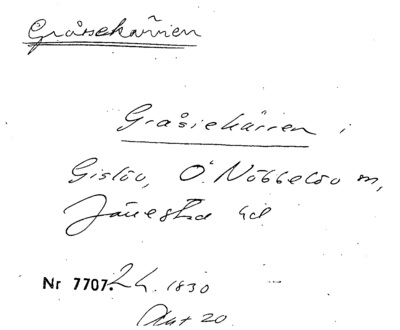 Gråsiekärren
Gråsiekärren i
Gislöv, Ö. Nöbbelöv m,
Järrestad hd
Nr 7707. 24. 1830
Akt 20